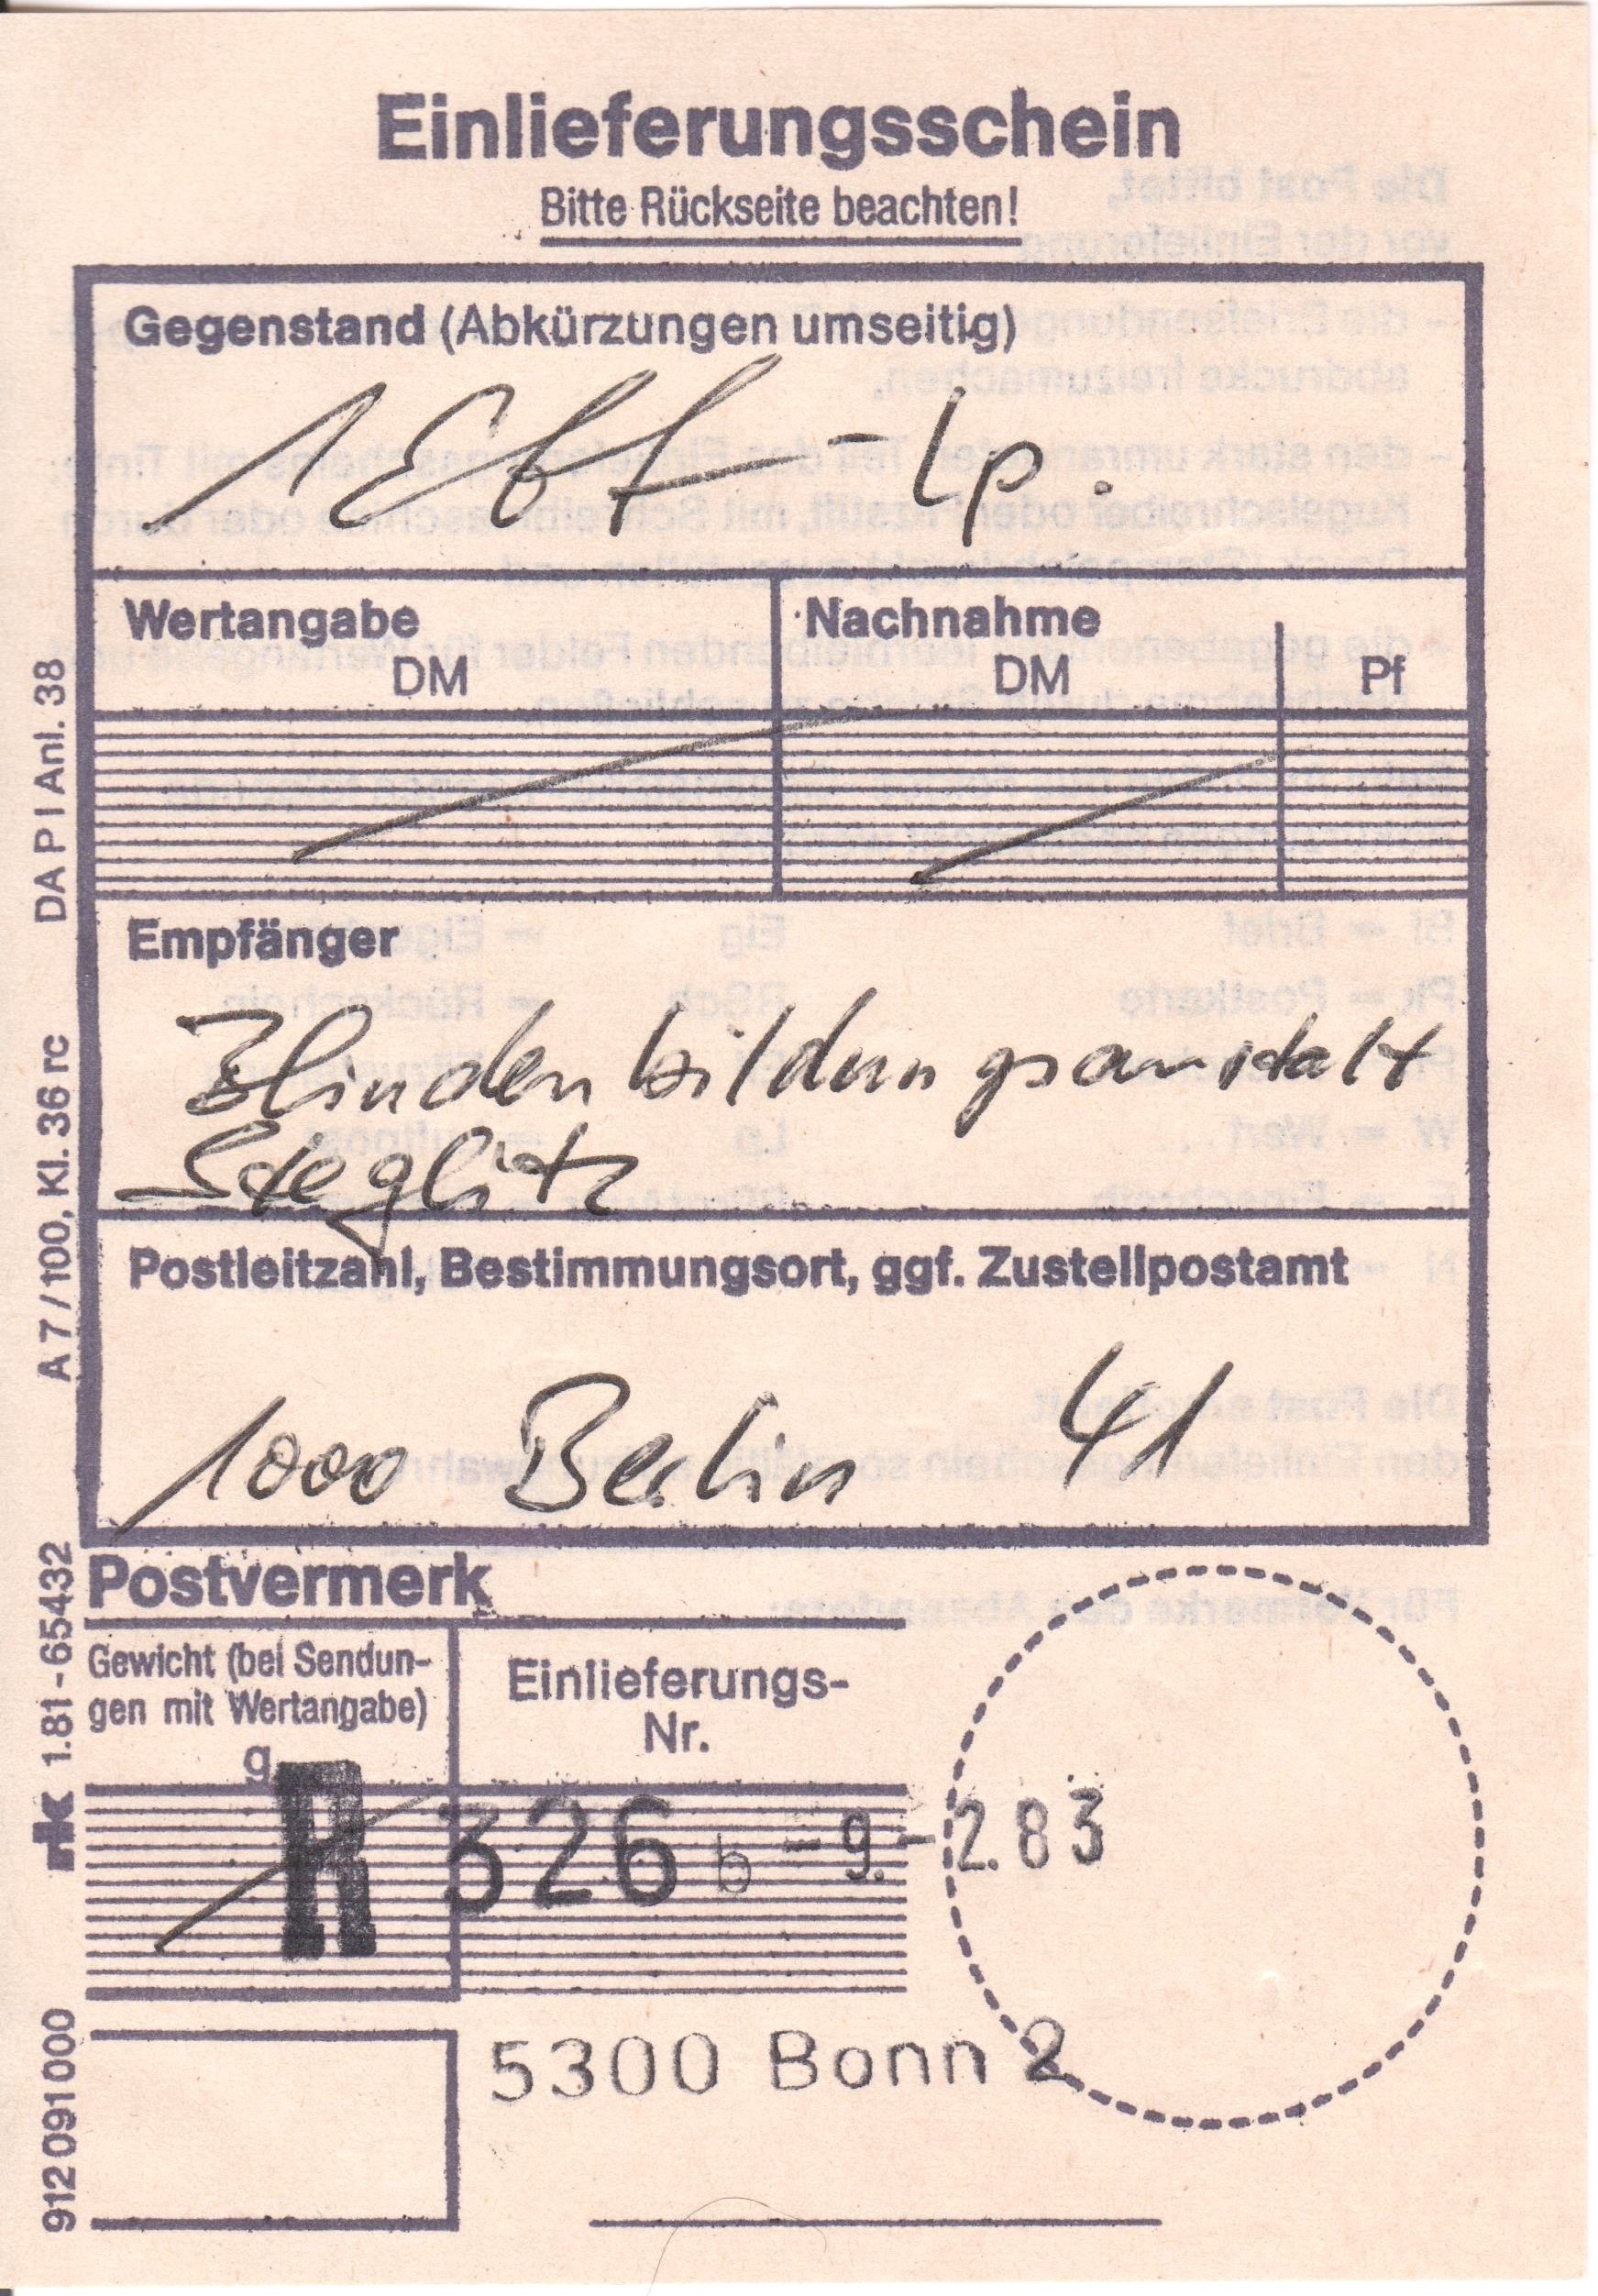 Einlieferungsschein
Bitte Rückseite beachten!
Gegenstand (Abkürzungen umseitig)
1 Ebf - Lp.
Wertangabe
DM
Nachnahme
DM
Pf
Empfänger
Blindenbildungsanstalt
Steglitz
Postleitzahl, Bestimmungsort, ggf. Zustellpostamt
1000 Berlin 41
Postvermerk
Gewicht (bei Sendun-
gen mit Wertangabe)
g
Einlieferungs-
Nr.
R 326 b -9.-2.83
5300 Bonn 2
912 091 000
rk 1.81-65432
A 7/100, Kl. 36 rc
DA P I Anl. 38